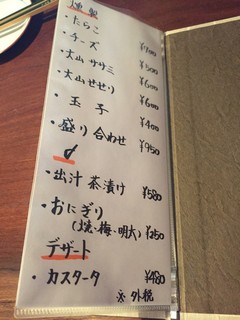 燻製
・たらこ ¥700
・チーズ ¥500
・大山ササミ ¥600
・大山せせり ¥600
・玉子 ¥400
・盛り合わせ ¥950
〆
・出汁茶漬け ¥580
・おにぎり
(焼・梅・明太) ¥250
デザート
・カスタータ ¥480
※外税